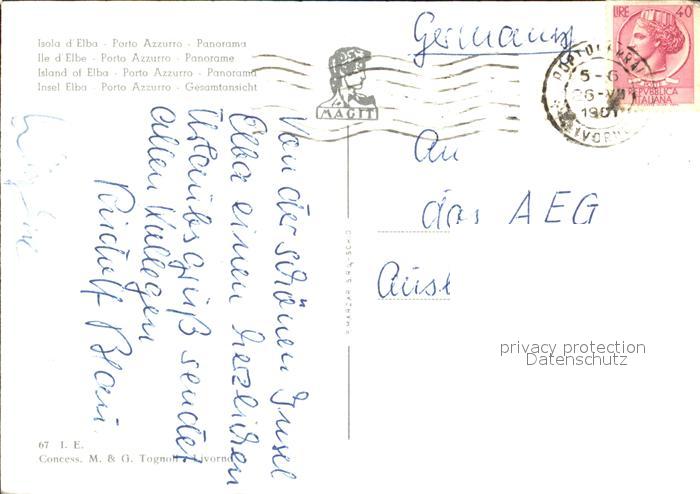 Isola d'Elba - Porto Azzurro - Panorama
Ile d'Elbe - Porto Azzurro - Panorame
Island of Elba - Porto Azzurro - Panorama
Insel Elba - Porto Azzurro - Gesamtansicht
Germany
LIRE 40
REPVBBLICA
ITALIANA
5-6
MAGIT
An
das AEG
Von der schönen Insel
Elba einen herzlichen
Urlaubsgruß sendet
allen Kollegen
Rudolf
privacy protection
Datenschutz
67 I. E.
Concess. M. & G. Tognoli Livorno